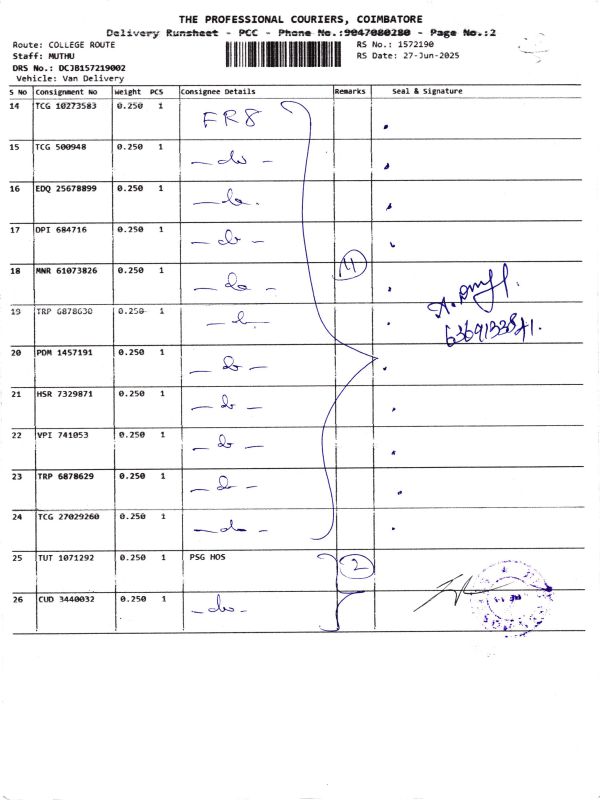 THE PROFESSIONAL COURIERS, COIMBATORE
Delivery Runsheet - PCC - Phone No.:9047080280 - Page No.:2
Route: COLLEGE ROUTE RS No.: 1572190
Staff: MUTHU RS Date: 27-Jun-2025
DRS No.: DCJB157219002
Vehicle: Van Delivery
S No Consignment No Weight PCS Consignee Details Remarks Seal & Signature
14 TCG 10273583 0.250 1 FR8
15 TCG 500948 0.250 1 - do -
16 EDQ 25678899 0.250 1 - do -
17 DPI 684716 0.250 1 - do -
18 MNR 61073826 0.250 1 - do - 11
19 TRP 6878630 0.250 1 - do -
6369133841.
20 PDM 1457191 0.250 1 - do -
21 HSR 7329871 0.250 1 - do -
22 VPI 741053 0.250 1 - do -
23 TRP 6878629 0.250 1 - do -
24 TCG 27029260 0.250 1 - do -
25 TUT 1071292 0.250 1 PSG HOS 2
26 CUD 3440032 0.250 1 - do -